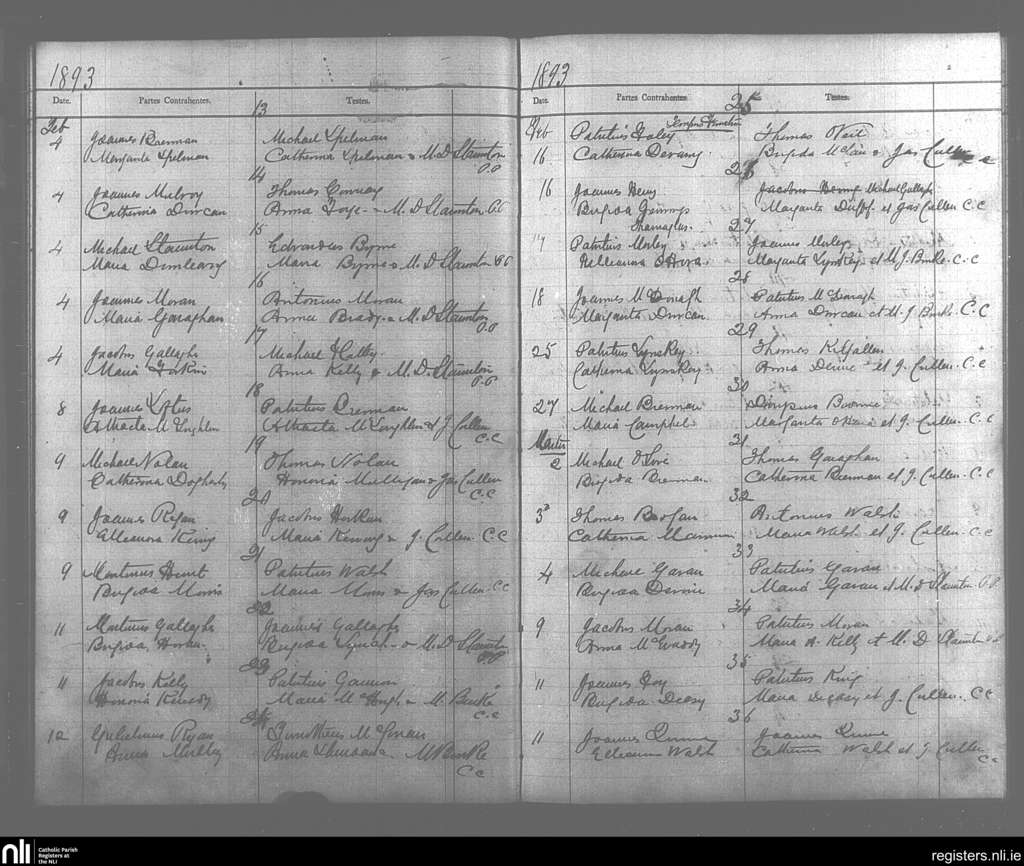 1893
Date. Partes Contrahentes. Testes.
13
Feb
4 Joannes Brennan Michael Spelman
Margarita Spelman Catherina Spelman & M. D. Staunton P.P
14
4 Joannes Mulroy Thomas Conway
Catherina Duncan Anna Foye & M. D Staunton P.P
15
4 Michael Staunton Edvardus Byrne
Maria Dunleavy Maria Byrne & M. D Staunton P.P
16
4 Joannes Moran Antonius Moran
Maria Garaghan Anna Brady & M. D Staunton P.P
17
4 Jacobus Gallagher Michael
Maria Anna Kelly & M. D. Staunton P.P
18
8 Joannes Loftus Patritius Brennan
Attracta McLoughlin Attracta McLoughlin & J Cullen C.C
19
9 Michael Nolan Thomas Nolan
Catherina Dogherty Honoria Mulligan & Jas Cullen C.C
20
9 Joannes Ryan Jacobus
Elleanora Maria & J. Cullen C.C
21
9 Martinus Hunt Patritius Walsh
Brigida Morris Maria Morris & Jas Cullen C.C
22
11 Martinus Gallagher Joannes Gallagher
Brigida Horan Brigida Lynch & M. D Staunton P.P
23
11 Jacobus Kelly Patritius Gannon
Honoria Maria McHugh & M. Burke C.C
24
12 Gulielmus Ryan
Anna Mulroy Anna M Burke
C.C
1893
Date. Partes Contrahentes. Testes.
25
Feb Patritius Foley Thomas
16 Catherina Brigida & Jas Cullen
26
16 Joannes Michael Gallagher
Brigida Jennings Margarita Duffy et Jas Cullen C.C
27
17 Patritius Morley Joannes Morley
O'Hora Margarita Lynskey et M. J. Burke C.C
28
18 Joannes McDonagh Patritius McDonagh
Margarita Duncan Anna Duncan et M. J Burke C.C
29
25 Patritius Lynskey Thomas Kilgallen
Catherina Lynskey Anna et J. Cullen C.C
30
27 Michael Brennan
Maria Campbell Margarita et J. Cullen C.C
Martii 31
2 Michael Thomas Garaghan
Brigida Brennan Catherina Brennan et J. Cullen C.C
32
3 Thomas Antonius Walsh
Catherina Maria Walsh et J. Cullen C.C
33
4 Michael Gavan Patritius Gavan
Brigida Maria Gavan et M. D Staunton P.P
34
9 Jacobus Moran Patritius Moran
Anna Maria A. Kelly et M. D Staunton P.P
35
11 Joannes Foy Patritius King
Brigida Deasy Maria Deasy et J. Cullen C.C
36
11 Joannes Quinn Joannes Quinn
Elleanora Walsh Catherina Walsh et J Cullen
C.C
nli Catholic Parish
Registers at
the NLI
registers.nli.ie